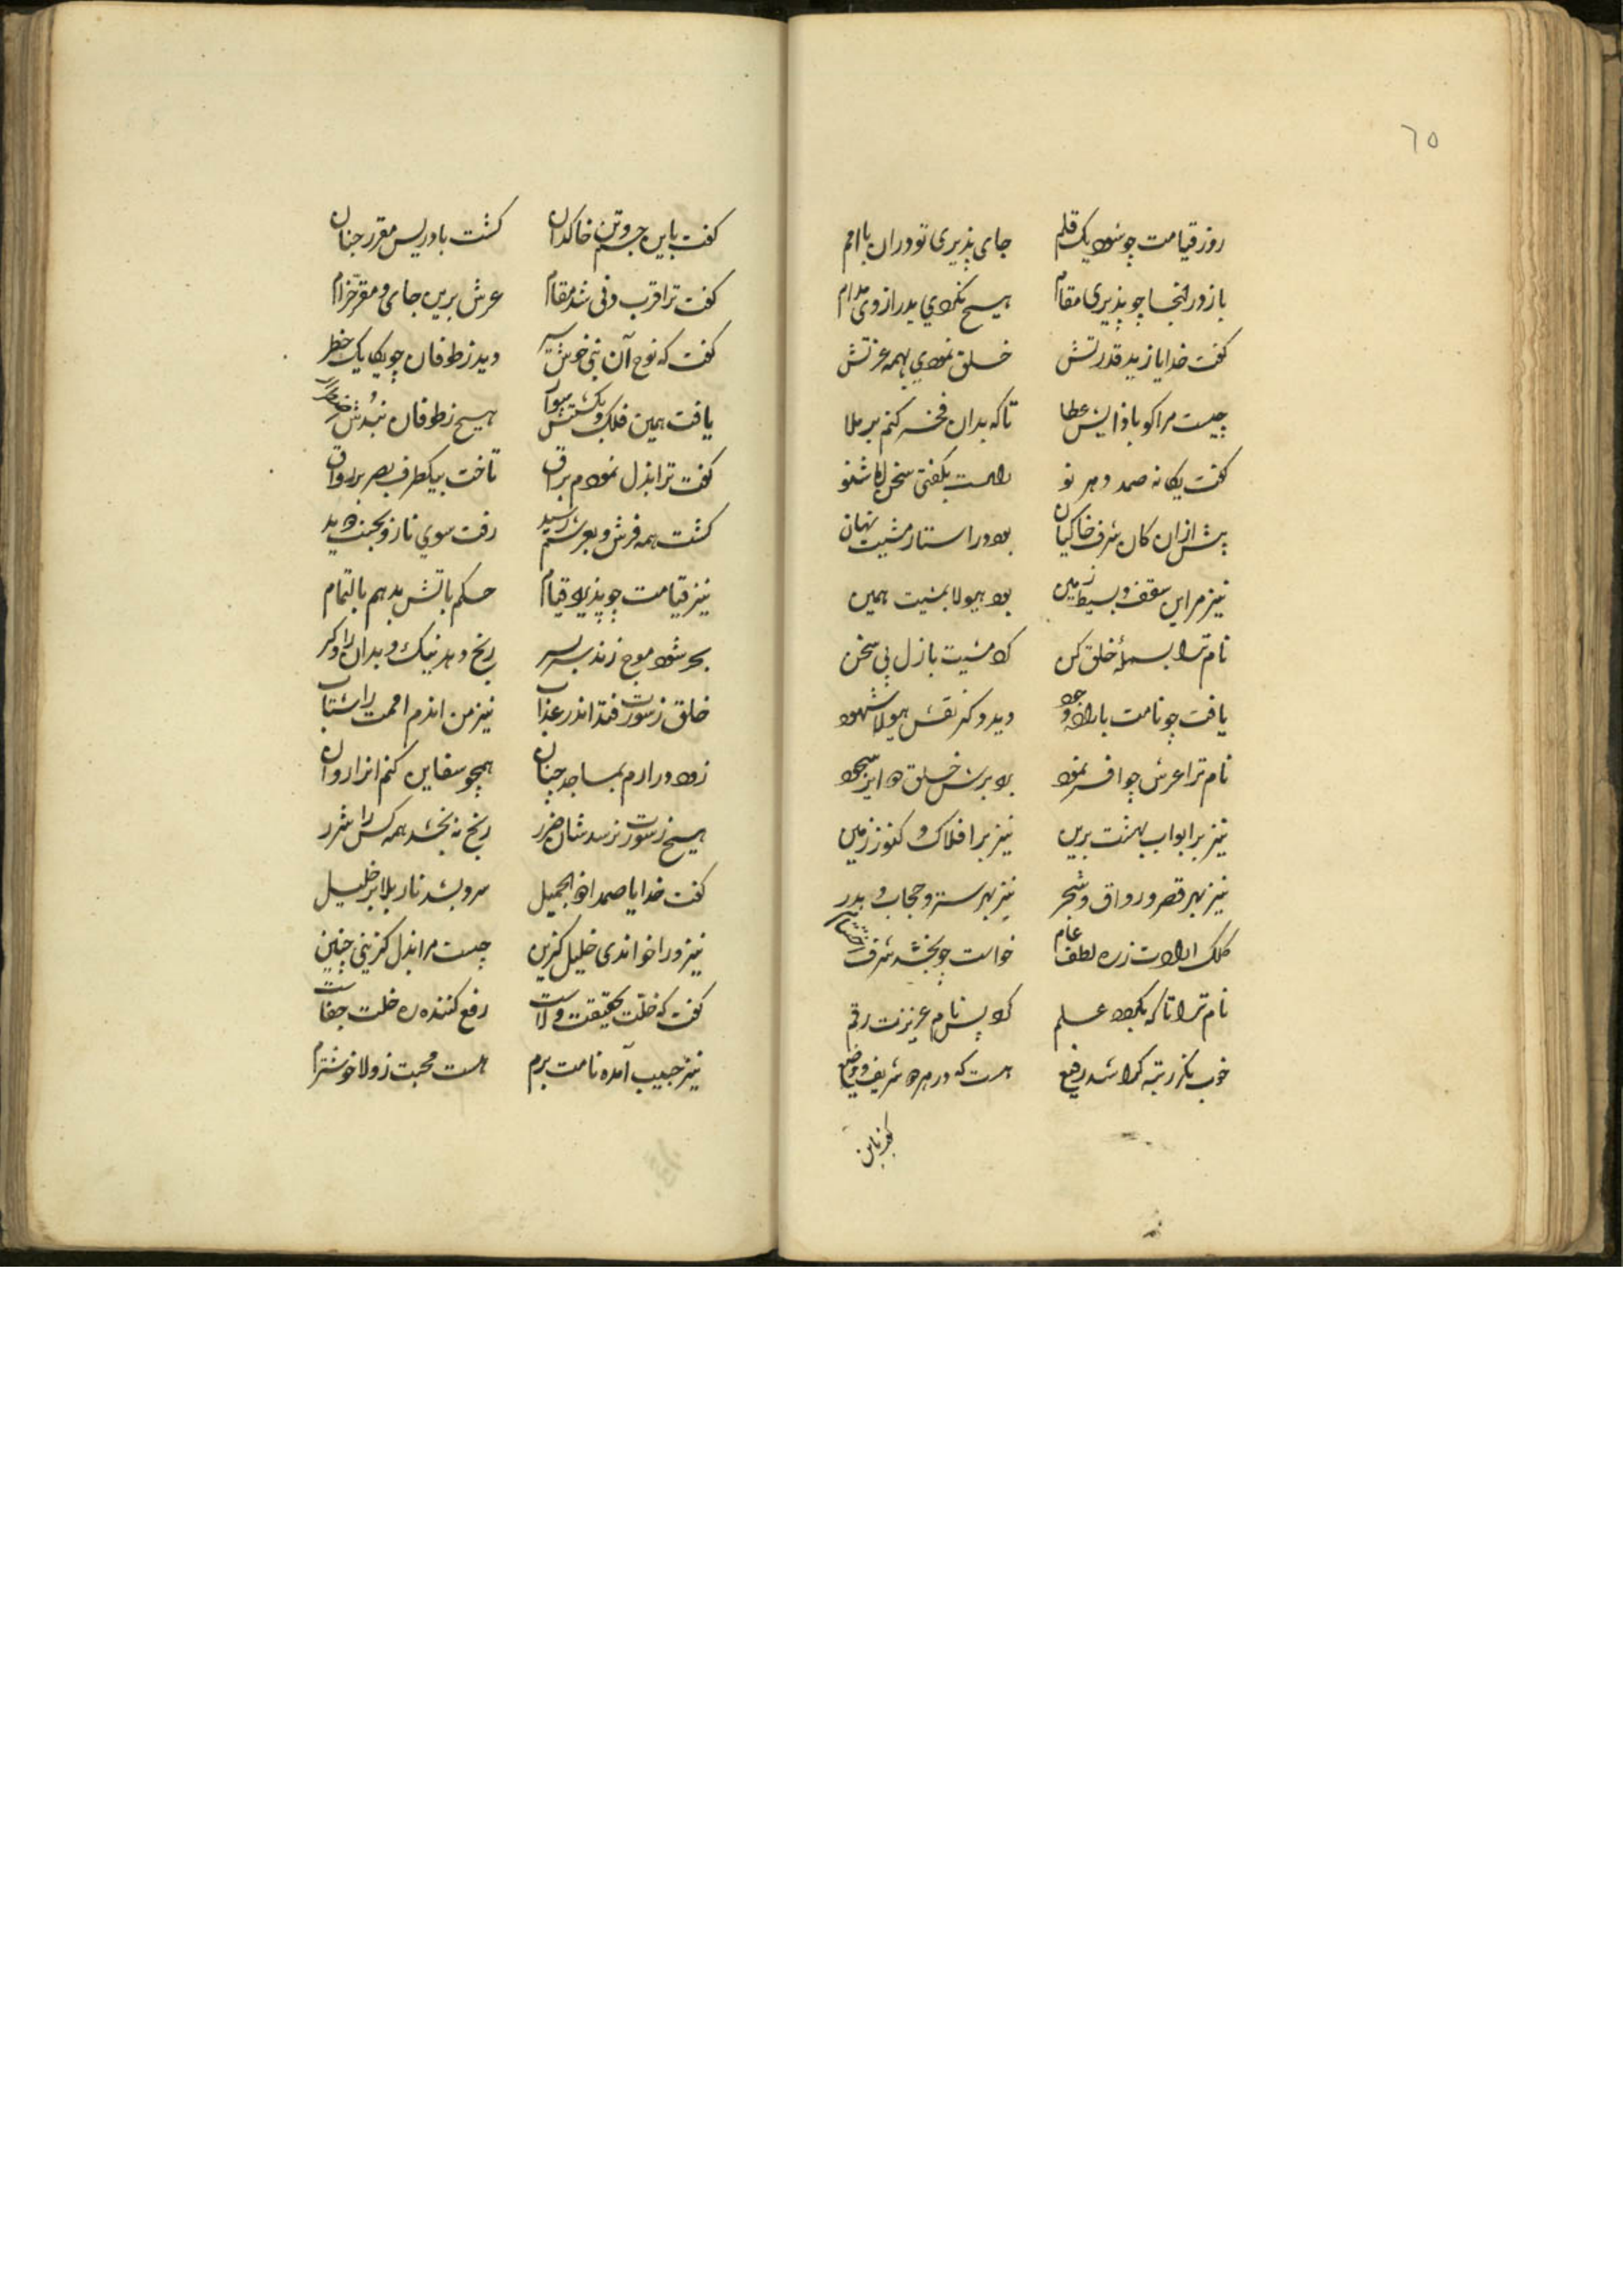 ٦٥
روز قیامت چو شود یک قلم جای پذیری تو دران با امم
باز در انجا چو پذیری مقام هیچ نکردي بدر از وی مدام
کفت خدایا ز ید قدرتش خلق نمودي بهمه عزتش
چیست مرا کو باذایش عطا تا که بدان فخر کنم بر ملا
کفت یکانه صمد راست بکفتی سخن
پیش ازان کان شرف خاکیان بود در استار مشیت نهان
نیز مر این سقف و بسیط زمین بود هیولا بمشیت همین
نام ترا بسمهٔ خلق کن کرد مشیت بازل بی سخن
یافت چو نامت باراده وجود دید دکر نقش هیولا شهود
نام ترا عرش چو افسر نمود بود برش خلق
نیز بر ابواب بهشت برین نیز بر افلاک و کنوز زمین
نیز بهر قصر و رواق و شجر نیز بهر ستر و حجاب و بدر
کلک ارادت زره لطف عام خواست چو بخشد شرف
نام ترا تا که بکرد علم کرد پس نام عزیزت رقم
خوب نکر رتبه کرا شد رفیع هست که در بهره شریف و وضیع
کفت باین جسم وتن خاکدان کشت بادریس مقرر جنان
کفت ترا قرب دنی شد مقام عرش برین جای و مقر خرام
کفت که نوح آن نبی خوش سیر دید ز طوفان چو یکایک خطر
یافت همین فلک و بکشتش سوار هیچ ز طوفان نبدش
کفت ترا بذل نمودم براق تاخت بیکطرف بصر بر رواق
کشت همه فرش و بعرشم رسید رفت سوي نار و بجنت
نیز قیامت چو پذیرد قیام حکم باتش بدهم بالتمام
بحر شود موج زند سربسر رنج دهد نیک و بدان را دکر
خلق ز سورت فتد اندر عذاب نیز من اندم امت را شتاب
زود درارم بمساجد چنان همچو سفاین کنم انرا روان
هیچ ز سورت نرسد شان ضرر رنج نه بخشد همه کس را شرر
کفت خدایا صمدا ذو الجمیل سرد بشد نار بلا بر خلیل
نیز ورا خواندی خلیل کزین چیست مرا بذل کزینی چنین
کفت که خلت بحقیقت ولاست رفع کننده ره خلت جفاست
نیز حبیب آمده نامت برم هست محبت ز ولا خوشترم